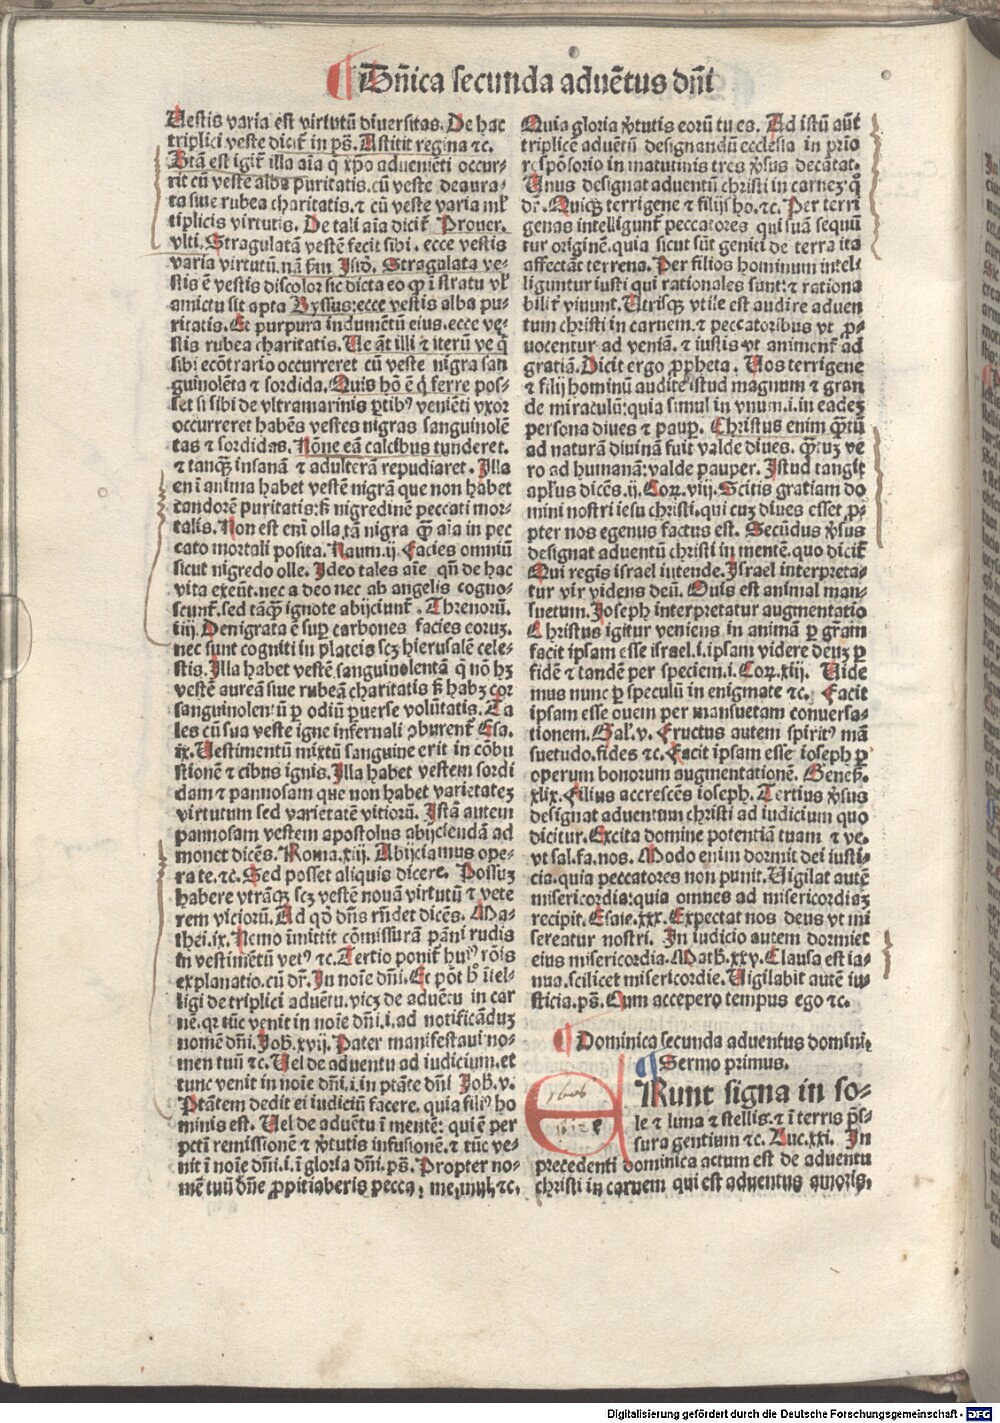 ¶ Dn̄ica secunda aduẽtus dn̄i
Uestis varia est virtutũ diuersitas. De hac
triplici veste dicit᷑ in ps̄. Astitit regina ⁊c.
Btã est igit᷑ illa aĩa q̃ xp̄o aduenieti occur⸗
rit cũ veste alba puritatis. cũ veste deaura⸗
ta siue rubea charitatis. ⁊ cũ veste varia ml̕
tiplicis virtutis. De tali aĩa dicit᷑ Prouer.
vlti. Stragulatã vestẽ fecit sibi. ecce vestis
varia virtutũ. nã ẜm Isid̕. Stragulata ve⸗
stis ē vestis discolor sic dicta eo ꝙ ĩ stratu vl̕
amictu sit apta Byssus: ecce vestis alba pu⸗
ritatis. Et purpura indumẽtũ eius. ecce ve⸗
stis rubea charitatis. Ue aũt illi ⁊ iterũ ve q̇
sibi ecõtrario occurreret cũ veste nigra san
guinolẽta ⁊ sordida. Quis hõ ẽ q̇ ferre pos⸗
set si sibi de vltramarinis ꝑtibꝰ veniẽti vxor
occurreret habẽs vestes nigras sanguinolẽ
tas ⁊ sordidas. Nõne eã calcibus tunderet.
⁊ tanqꝫ̃ insanã ⁊ adulterã repudiaret. Illa
eni ̃ anima habet vestẽ nigrã que non habet
candorẽ puritatis: ẜ nigredinẽ peccati mor⸗
talis. Non est eni ̃ olla tã nigra q̃ꝫ aĩa in pec
cato mortali posita. Naum. ij. Facies omniũ
sicut nigredo olle. Ideo tales aĩe qñ de hac
vita exeũt. nec a deo nec ab angelis cogno⸗
scunt᷑. sed tãqꝫ̃ ignote abijciunt᷑. Threnorũ.
iiij. Denigrata ẽ sup̱ carbones facies eoruꝫ.
nec sunt cogniti in plateis scꝫ hierusalẽ cele⸗
stis. Illa habet vestẽ sanguinolentã q̃ nõ hꝫ
vestẽ aureã siue rubeã charitatis ẜ habꝫ cor
sanguinolentũ ꝑ odiũ ꝑuerse volũtatis. Ta
les cũ sua veste igne infernali ↄburent᷑ Esa.
ix. Uestimentũ mixtũ sanguine erit in cõbu
stionẽ ⁊ cibus ignis. Illa habet vestem sordi
dam ⁊ pannosam que non habet varietateꝫ
virtutum sed varietatẽ vitiorũ. Istã autem
pannosam vestem apostolus abijciendã ad
monet dicẽs. Roma. xiij. Abijciamus ope⸗
ra te. ⁊c. Sed posset aliquis dicere. Possuꝫ
habere vtrãqꝫ scꝫ vestẽ nouã virtutũ ⁊ vete
rem viciorũ. Ad qð dñs rñdet dicẽs. Ma⸗
thei. ix. Nemo ĩmittit cõmissurã pãni rudis
in vestimẽtũ vetꝰ ⁊c. Tertio ponit᷑ huiꝰ rõis
explanatio. cũ dr̄. In noĩe dñi. Et põt hͦ ĩtel⸗
ligi de triplici aduẽtu. vicꝫ de aduẽtu in car
nẽ. qꝛ tũc venit in noĩe dñi. i. ad notificãduꝫ
nomẽ dñi. Joh̕. xvij. Pater manifestaui no⸗
men tuũ ⁊c. Uel de aduentu ad iudicium. et
tunc venit in noĩe dñi. i. in ptãte dñi Joh̕. v.
Ptãtem dedit ei iudiciũ facere. quia filiꝰ ho
minis est. Uel de aduẽtu ĩ mentẽ: qui ẽ per
pctĩ remissionẽ ⁊ v̓tutis infusionẽ. ⁊ tũc ve⸗
nit ĩ noĩe dñi. i. ĩ gloria dñi. ps̄. Propter no⸗
mẽ tuũ dñe ꝓpitiaberis pecca. me. mul. ⁊c.
Quia gloria v̓tutis eorũ tu es. Ad istũ aũt
triplicẽ aduẽtũ designandũ ecclesia in prio
respõsorio in matutinis tres v̓sus decãtat.
Unus designat aduentũ christi in carneꝫ. q̊
dr̄. Quiqꝫ terrigene ⁊ filij ho. ⁊c. Per terri
genas intelligunt᷑ peccatores qui suã sequũ
tur originẽ. quia sicut sũt geniti de terra ita
affectãt terrena. Per filios hominum intel⸗
liguntur iusti qui rationales sunt: ⁊ rationa
bilit᷑ viuunt. Utrisqꝫ vtile est audire aduen
tum christi in carnem. ⁊ peccatoribus vt ꝓ⸗
uocentur ad veniã. ⁊ iustis vt animent᷑ ad
gratiã. Dicit ergo ꝓpheta. Uos terrigene
⁊ filij hominũ audite istud magnum ⁊ gran
de miraculũ: quia simul in vnum. i. in eadeꝫ
persona diues ⁊ paup̱. Christus enim q̃ꝫtũ
ad naturã diuinã fuit valde diues. q̃ꝫtuꝫ ve
ro ad humanã: valde pauper. Istud tangit
ap̕lus dicẽs. ij. Coꝝ. viij. Scitis gratiam do
mini nostri iesu christi. qui cuꝫ diues esset ꝓ⸗
pter nos egenus factus est. Secũdus v̓sus
designat aduentũ christi in mentẽ. quo dicit᷑
Qui regis israel intende. Israel interpreta⸗
tur vir videns deũ. Ouis est animal man⸗
suetum. Joseph interpretatur augmentatio
Christus igitur veniens in animã ꝑ gr̃am
facit ipsam esse israel. i. ipsam videre deuꝫ ꝑ
fidẽ ⁊ tandẽ per speciem. i. Coꝝ. xiij. Uide
mus nunc ꝑ speculũ in enigmate ⁊c. Facit
ipsam esse ouem per mansuetam conuersa⸗
tionem. Gal. v. Fructus autem spiritꝰ mã
suetudo. fides ⁊c. Facit ipsam esse ioseph ꝑ
operum bonorum augmentationẽ. Geneẜ.
xlix. Filius accrescẽs ioseph. Tertius v̓sus
designat aduentum christi ad iudicium quo
dicitur. Excita domine potentiã tuam ⁊ ve.
vt sal. fa. nos. Modo enim dormit dei iusti⸗
cia. quia peccatores non punit. Uigilat autẽ
misericordia: quia omnes ad misericordiaꝫ
recipit. Esaie. xxx. Expectat nos deus vt mi
sereatur nostri. In iudicio autem dormiet
eius misericordia. Math̕. xxv. Clausa est ia⸗
nua. scilicet misericordie. Uigilabit autẽ iu⸗
sticia. ps̄. Cum accepero tempus ego ⁊c.
¶ Dominica secunda aduentus domini.
¶ Sermo primus.
ERunt signa in so⸗
le ⁊ luna ⁊ stellis. ⁊ ĩ terris p̃s⸗
sura gentium ⁊c. Luc. xxi. In
precedenti dominica actum est de aduentu
christi in carnem qui est aduentus amoris.
Digitalisierung gefördert durch die Deutsche Forschungsgemeinschaft - DFG